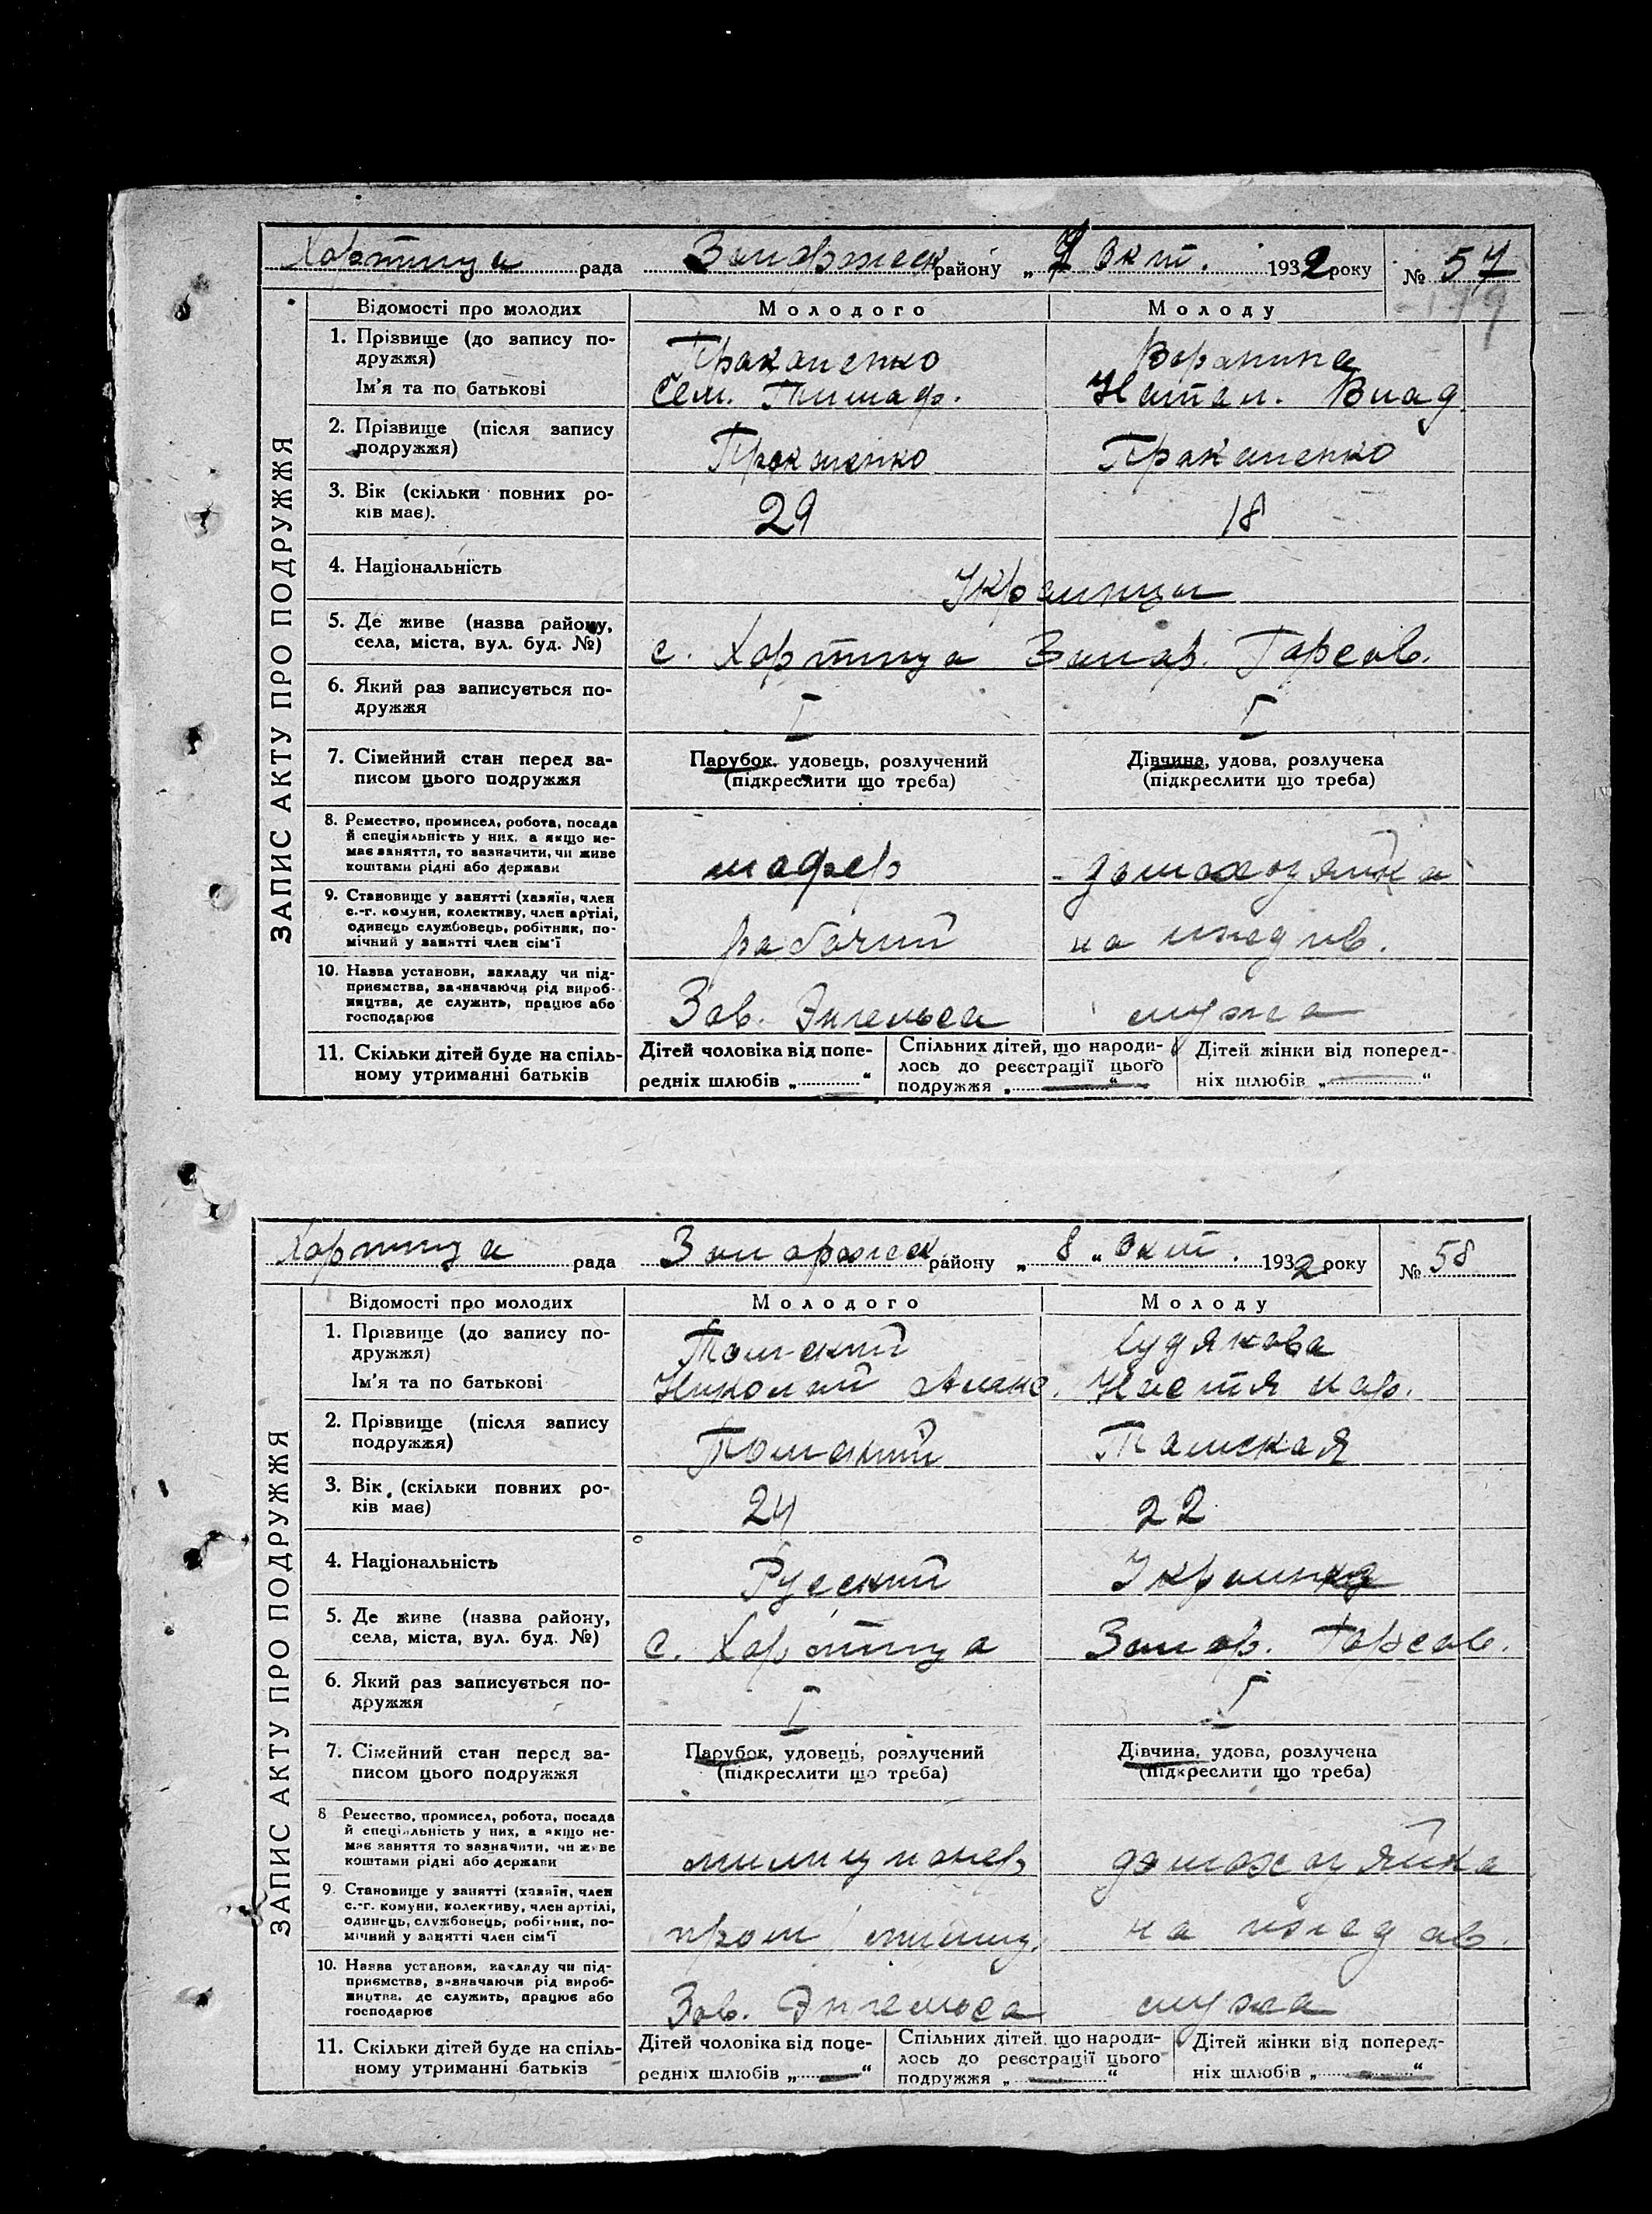 Хортица рада Запорожск району „7 Окт. 1932 року № 57
179
ЗАПИС АКТУ ПРО ПОДРУЖЖЯ
Відомості про молодих Молодого Молоду
1. Прізвище (до запису по-
дружжя)
Прокапенко Воранина
Ім'я та по батькові Сем. Тимаф. Натал. Влад
2. Прізвище (після запису
подружжя)
Пракапенко
3. Вік (скільки повних ро-
ків має).
29 18
4. Національність
Украинцы
5. Де живе (назва району,
села, міста, вул. буд. №)
с. Хортица Запор. Горсов.
6. Який раз записується по-
дружжя
I I
7. Сімейний стан перед за-
писом цього подружжя
Парубок, удовець, розлучений
(підкреслити що треба)
Дівчина, удова, розлучека
(підкреслити що треба)
8. Ремество, промисел, робота, посада
й спеціяльність у них, а якщо не-
має заняття, то зазначити, чи живе
коштами рідні або держави
шофер домохозяйка
9. Становище у занятті (хазяїн, член
с.-г. комуни, колективу, член артілі,
одинець службовець, робітник, по-
мічний у занятті член сім'ї
рабочий на иждив.
10. Назва установи, закладу чи під-
приємства, зазначаючи рід вироб-
ництва, де служить, працює або
господарює
Зав. Энгельса мужа
11. Скільки дітей буде на спіль-
ному утриманні батьків
Дітей чоловіка від попе-
редніх шлюбів „ “
Спільних дітей, що народи-
лось до реєстрації цього
подружжя „ “
Дітей жінки від поперед-
ніх шлюбів „ “
Хортица рада Запорожск району „ 8 „ Окт. 1932 року № 58
ЗАПИС АКТУ ПРО ПОДРУЖЖЯ
Відомості про молодих Молодого Молоду
1. Прізвище (до запису по-
дружжя)
Томский Худякова
Ім'я та по батькові Николай Алекс. Настя
2. Прізвище (після запису
подружжя)
Томский Тамская
3. Вік (скільки повних ро-
ків має)
24 22
4. Національність
Русский Украинка
5. Де живе (назва району,
села, міста, вул. буд. №)
с. Хортица Запор. Горсов.
6. Який раз записується по-
дружжя
I I
7. Сімейний стан перед за-
писом цього подружжя
Парубок, удовець, розлучений
(підкреслити що треба)
Дівчина, удова, розлучена
(підкреслити що треба)
8 Ремество, промисел, робота, посада
й спеціяльність у них, а якщо не-
має заняття то зазначити, чи живе
коштами рідні або держави
милиционер домохозяйка
9. Становище у занятті (хазяїн, член
с.-г. комуни, колективу, член артілі,
одинець, службовець, робітник, по-
мічний у занятті член сім'ї
пром милиц. на иждив.
10. Назва установи, закладу чи під-
приємства, зазначаючи рід вироб-
ництва, де служить, працює або
господарює
Зав. Энгельса мужа
11. Скільки дітей буде на спіль-
ному утриманні батьків
Дітей чоловіка від попе-
редніх шлюбів „ “
Спільних дітей, що народи-
лось до реєстрації цього
подружжя „ “
Дітей жінки від поперед-
ніх шлюбів „ “